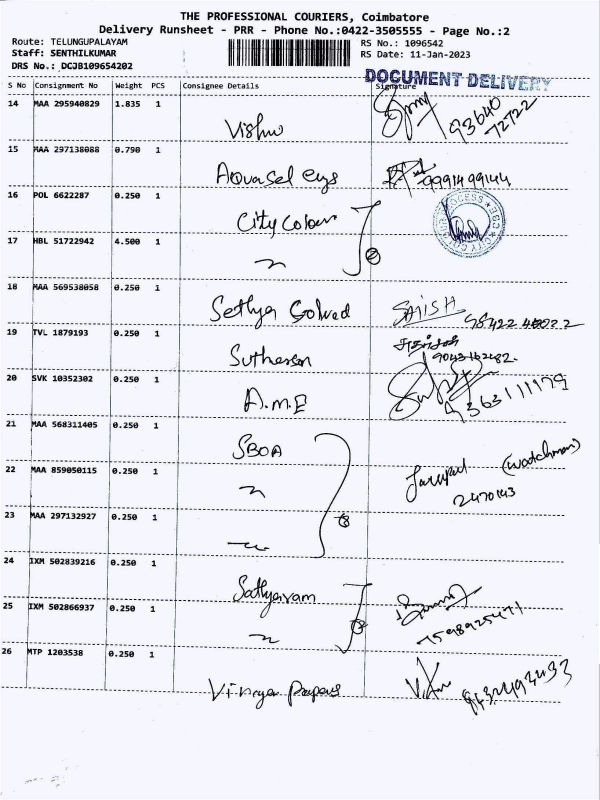 THE PROFESSIONAL COURIERS, Coimbatore
Delivery Runsheet - PRR - Phone No.:0422-3505555 - Page No.:2
Route: TELUNGUPALAYAM RS No.: 1096542
Staff: SENTHILKUMAR RS Date: 11-Jan-2023
DRS No.: DCJB109654202
DOCUMENT DELIVERY
S No Consignment No Weight PCS Consignee Details Signature
14 MAA 295940829 1.835 1
Vishnu 93640
72722
15 MAA 297138088 0.790 1
Aquasel eys 9991499144
16 POL 6622287 0.250 1
City Colour
17 HBL 51722942 4.500 1
18 MAA 569538058 0.250 1
Sethya SATISH
19 TVL 1879193 0.250 1
9043162482
20 SVK 10352302 0.250 1
A.M.E 9363111179
21 MAA 568311405 0.250 1
SBOA
22 MAA 859050115 0.250 1
(watchman)
2470143
23 MAA 297132927 0.250 1
24 IXM 502839216 0.250 1
Sathyaram
25 IXM 502866937 0.250 1
7598925471
26 MTP 1203538 0.250 1
Vinaya Papers